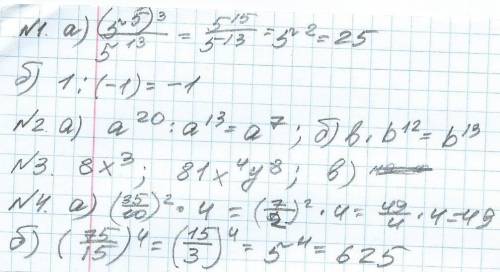 №1. а) (5⁵)³/5¹³ = 5¹⁵/5¹³ = 5² = 25
б) 1 : (-1) = -1
№2. а) a²⁰ : a¹³ = a⁷ ; б) b · b¹² = b¹³
№3. 8x³ ; 81x⁴y⁸ ; в)
№4. а) (35/10)² · 4 = (7/2)² · 4 = 49/4 · 4 = 49
б) (75/15)⁴ = (15/3)⁴ = 5⁴ = 625